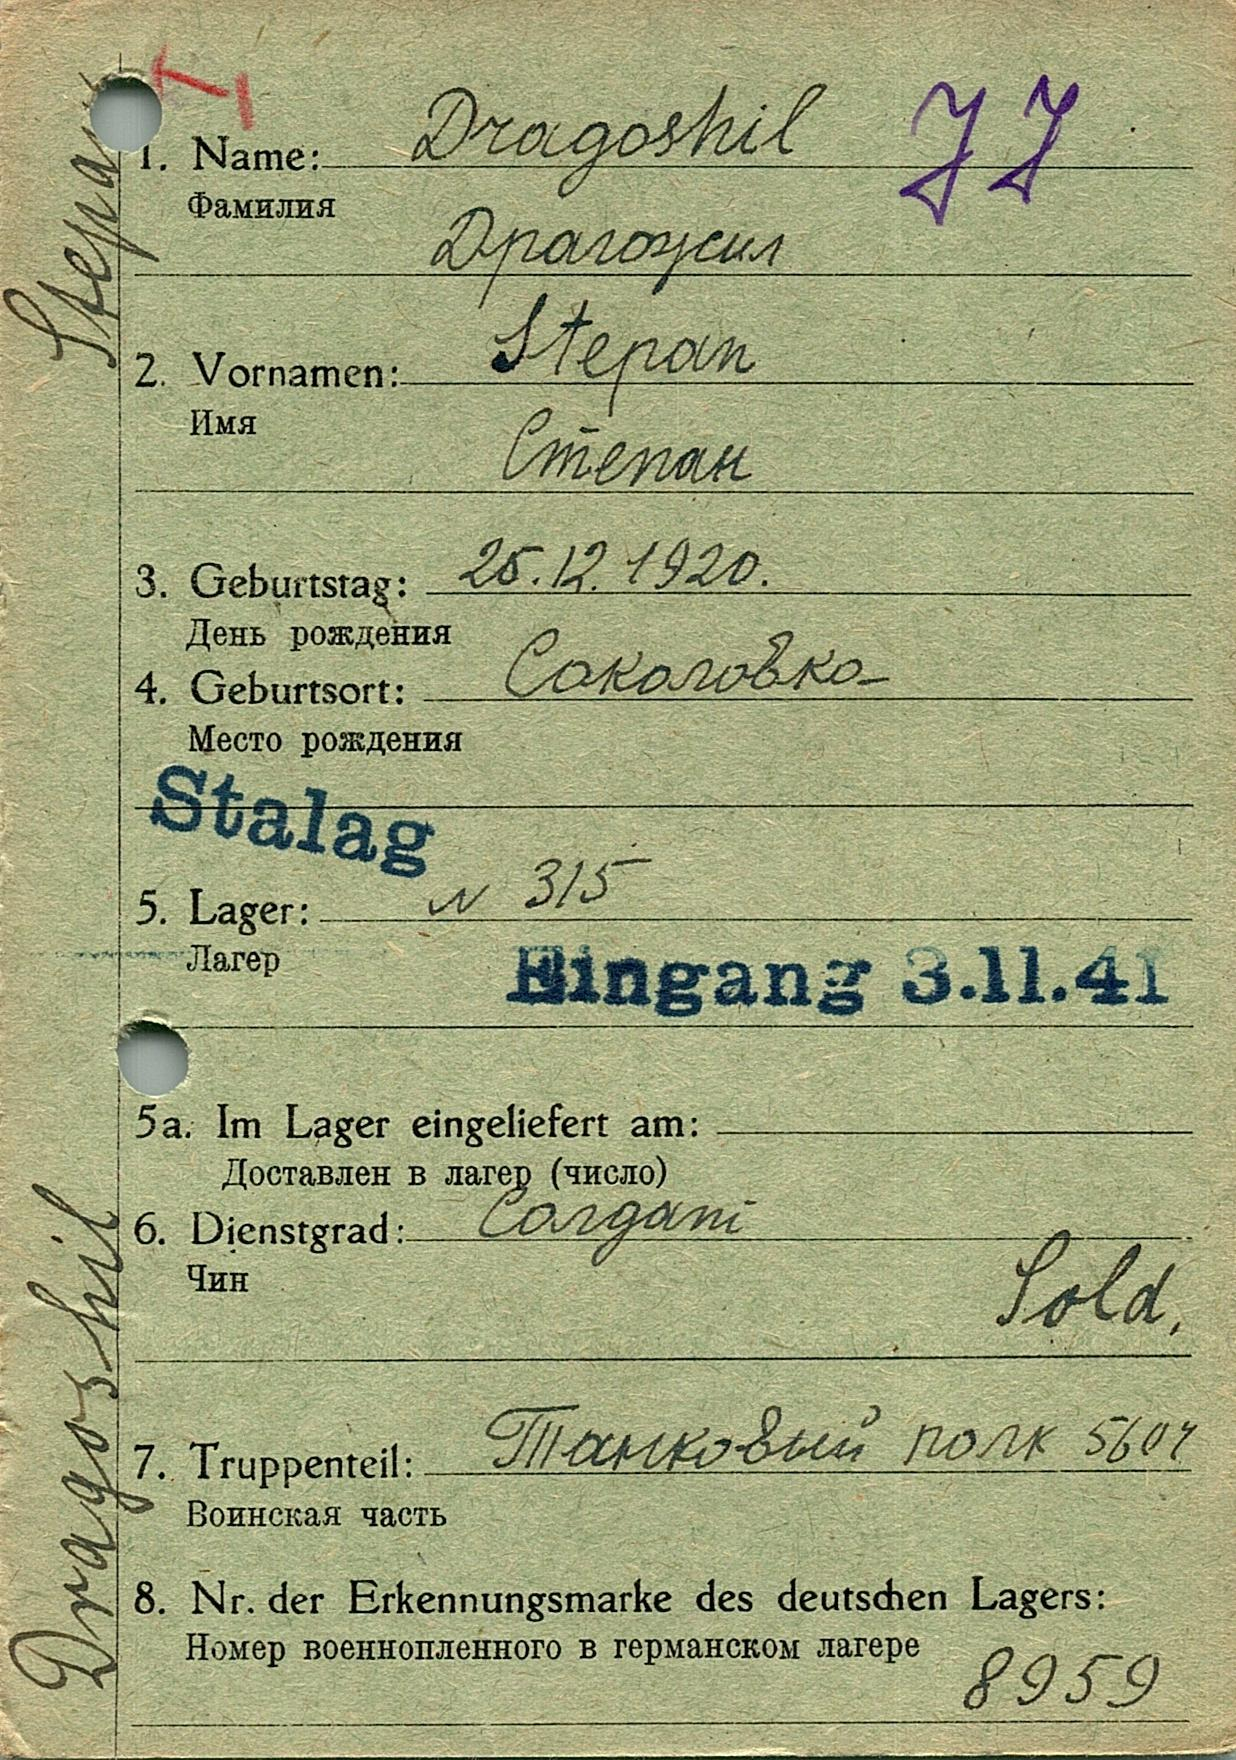 Stepan
1. Name: Dragoshil JJ
Фамилия
Драгожил
2. Vornamen: Stepan
Имя
Степан
3. Geburtstag: 25.12.1920.
День рождения
4. Geburtsort: Соколовка
Место рождения
Stalag
5. Lager: N 315
Лагер
Eingang 3.11.41
5a. Im Lager eingeliefert am:
Доставлен в лагер (число)
6. Dienstgrad: Солдат
Чин
Sold.
7. Truppenteil: Танковый полк 5604
Воинская часть
8. Nr. der Erkennungsmarke des deutschen Lagers:
Номер военнопленного в германском лагере
8959
Dragoshil